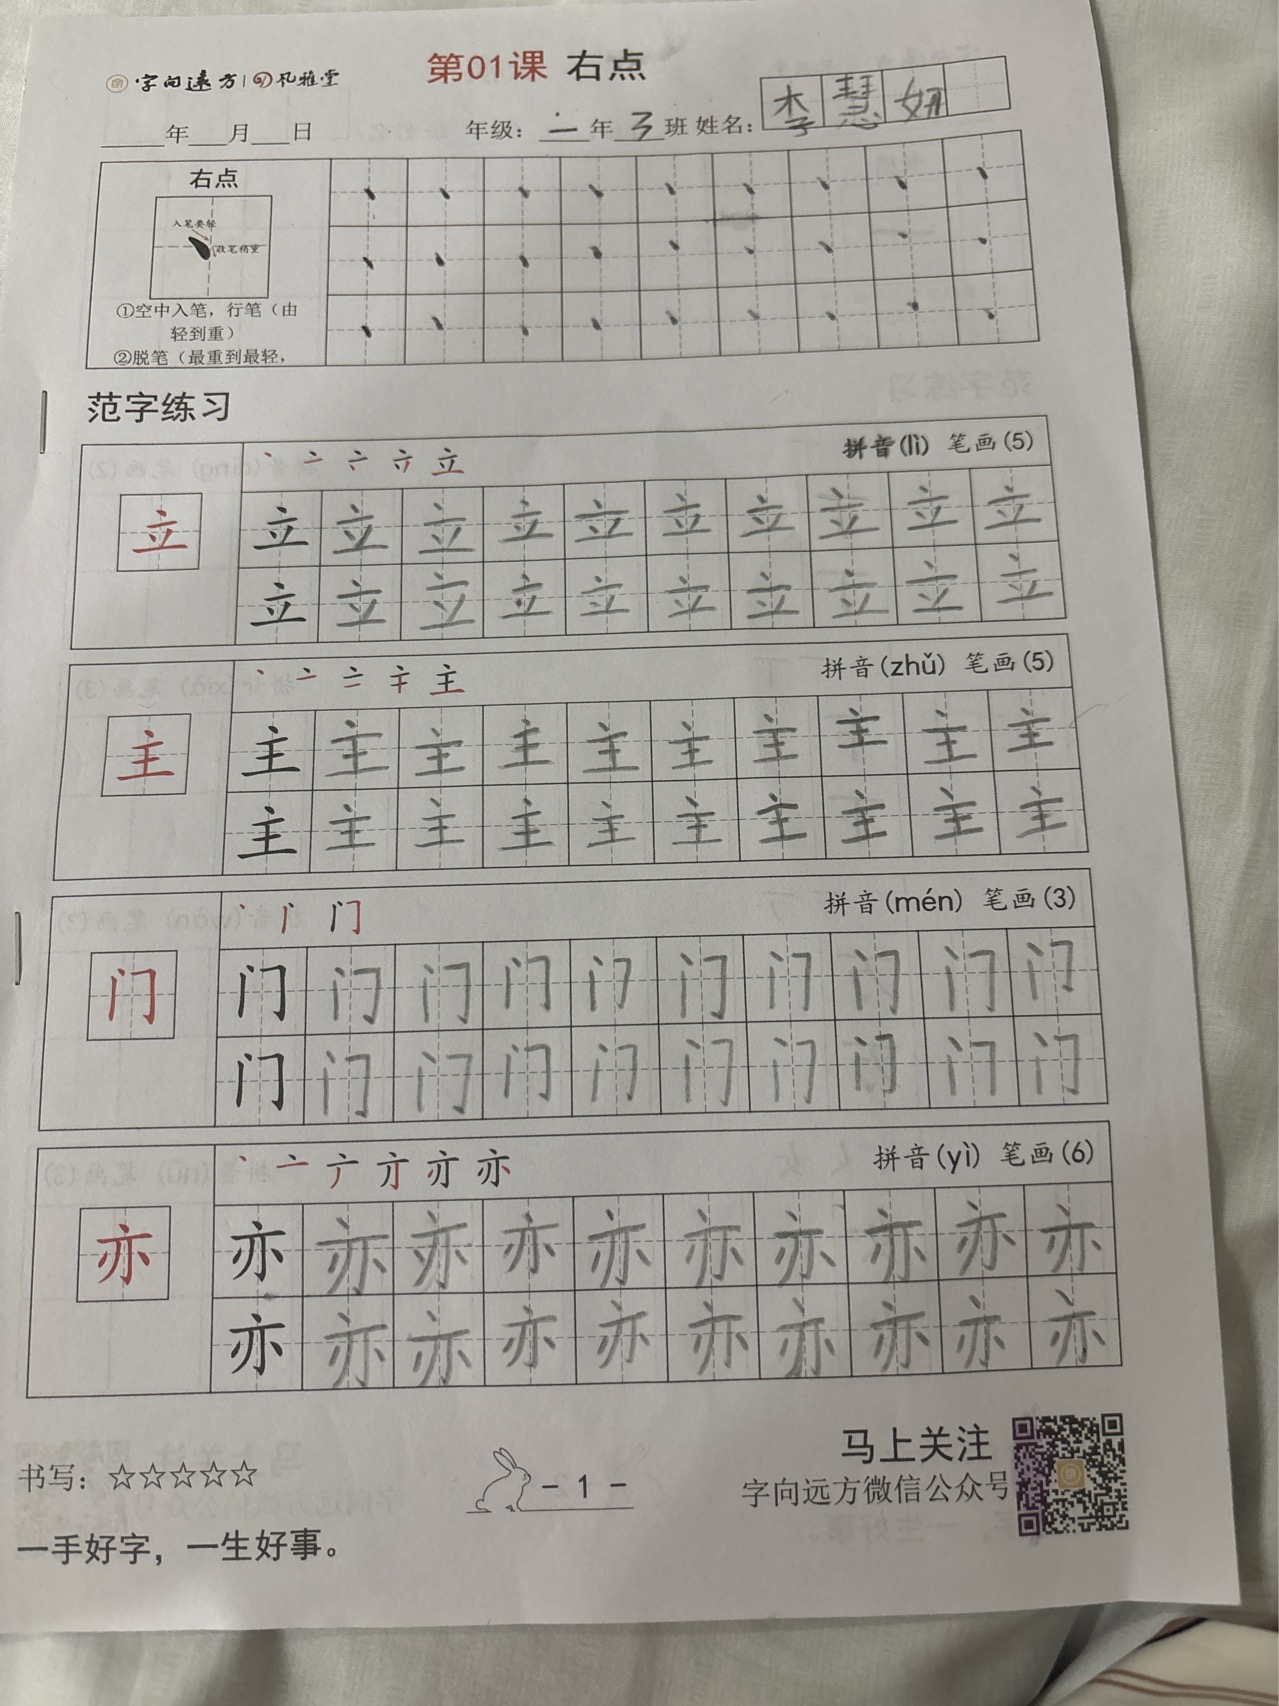 字向远方 | 风雅堂
第01课 右点
年 月 日 年级: 一年 3班 姓名: 李慧妍
右点
入笔要轻
收笔稍重
①空中入笔，行笔（由
轻到重）
②脱笔（最重到最轻，
范字练习
丶 亠 立 拼音(lì) 笔画(5)
立 立 立 立 立 立 立 立 立 立 立
立 立 立 立 立 立 立 立 立 立
丶 亠 主 拼音(zhǔ) 笔画(5)
主 主 主 主 主 主 主 主 主 主 主
主 主 主 主 主 主 主 主 主 主
丶 门 拼音(mén) 笔画(3)
门 门 门 门 门 门 门 门 门 门 门
门 门 门 门 门 门 门 门 门 门
丶 亠 亦 拼音(yì) 笔画(6)
亦 亦 亦 亦 亦 亦 亦 亦 亦 亦 亦
亦 亦 亦 亦 亦 亦 亦 亦 亦 亦
书写: ☆☆☆☆☆
- 1 -
马上关注
字向远方微信公众号
一手好字，一生好事。